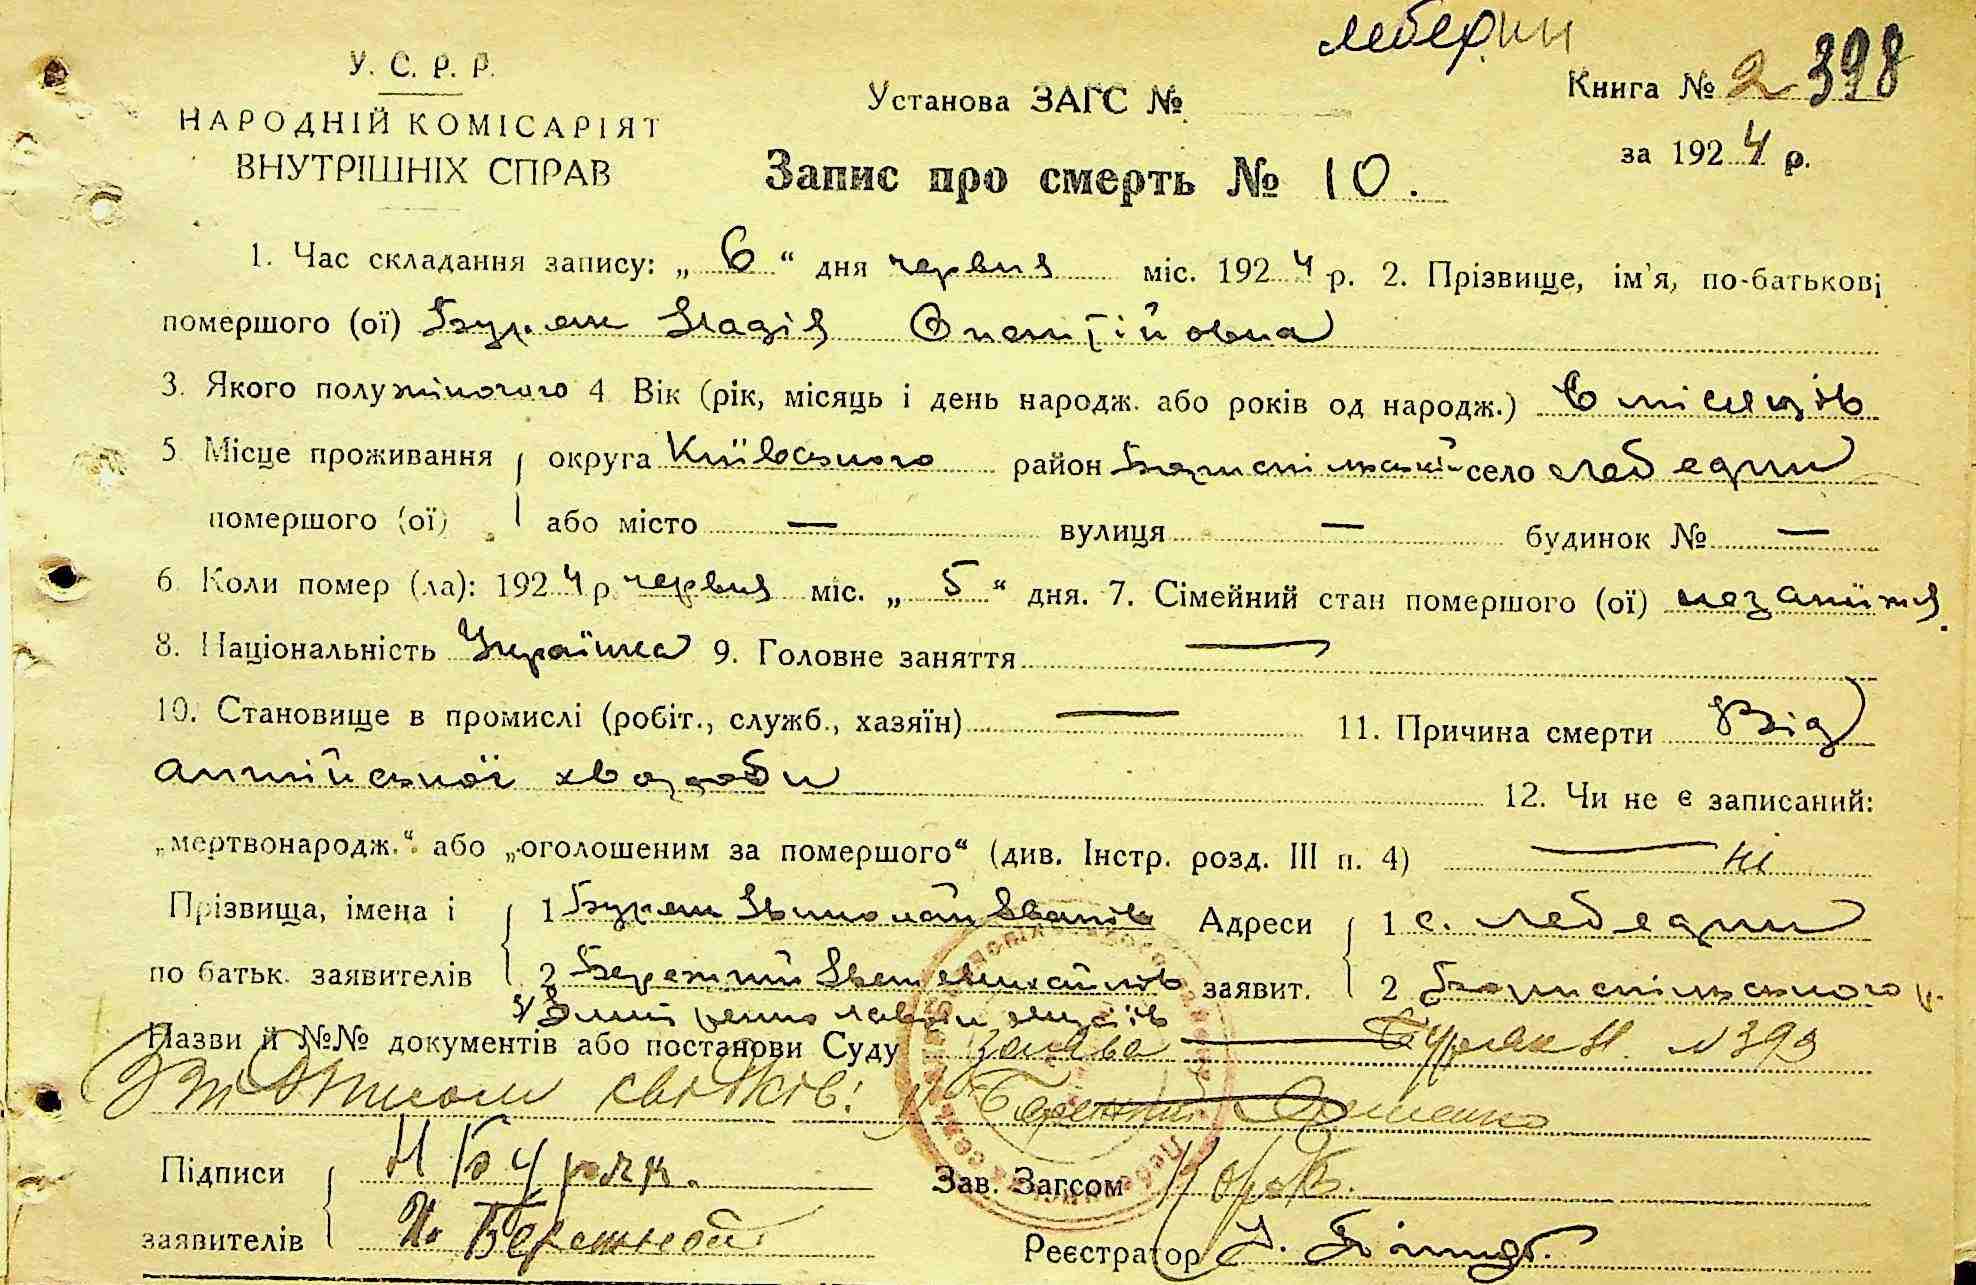 Лебедин
У. С. Р. Р.
НАРОДНІЙ КОМІСАРІЯТ
ВНУТРІШНІХ СПРАВ
Установа ЗАГС №
Книга № 2 398
за 1924 р.
Запис про смерть № 10.
1. Час складання запису: „ 6 “ дня червня міс. 1924 р. 2. Прізвище, ім'я, по-батькові
помершого (ої) Буряк Надія
3. Якого полу жіночого 4 Вік (рік, місяць і день народж. або років од народж.) 6 місяців
5. Місце проживання округа Київського район Бориспільськ село Лебедин
помершого (ої) або місто — вулиця — будинок № —
6. Коли помер (ла): 1924 р червня міс. „ 5 “ дня. 7. Сімейний стан помершого (ої) незаміжня
8. Національність Українка 9. Головне заняття —
10. Становище в промислі (робіт., служб., хазяїн) — 11. Причина смерти Від
англійської хвороби 12. Чи не є записаний:
„мертвонародж.“ або „оголошеним за помершого“ (див. Інстр. розд. III п. 4) — ні
Прізвища, імена і 1 Буряк Іванів Адреси 1 с. Лебедин
по батьк. заявителів 2 Бережний Іван Михайлів заявит. 2 Бориспільського р.
Назви й №№ документів або постанови Суду Заява — Буряк Н. №393
свідків: Бережний
Підписи Н Буряк. Зав. Загсом
заявителів Ив Бережной Реєстратор